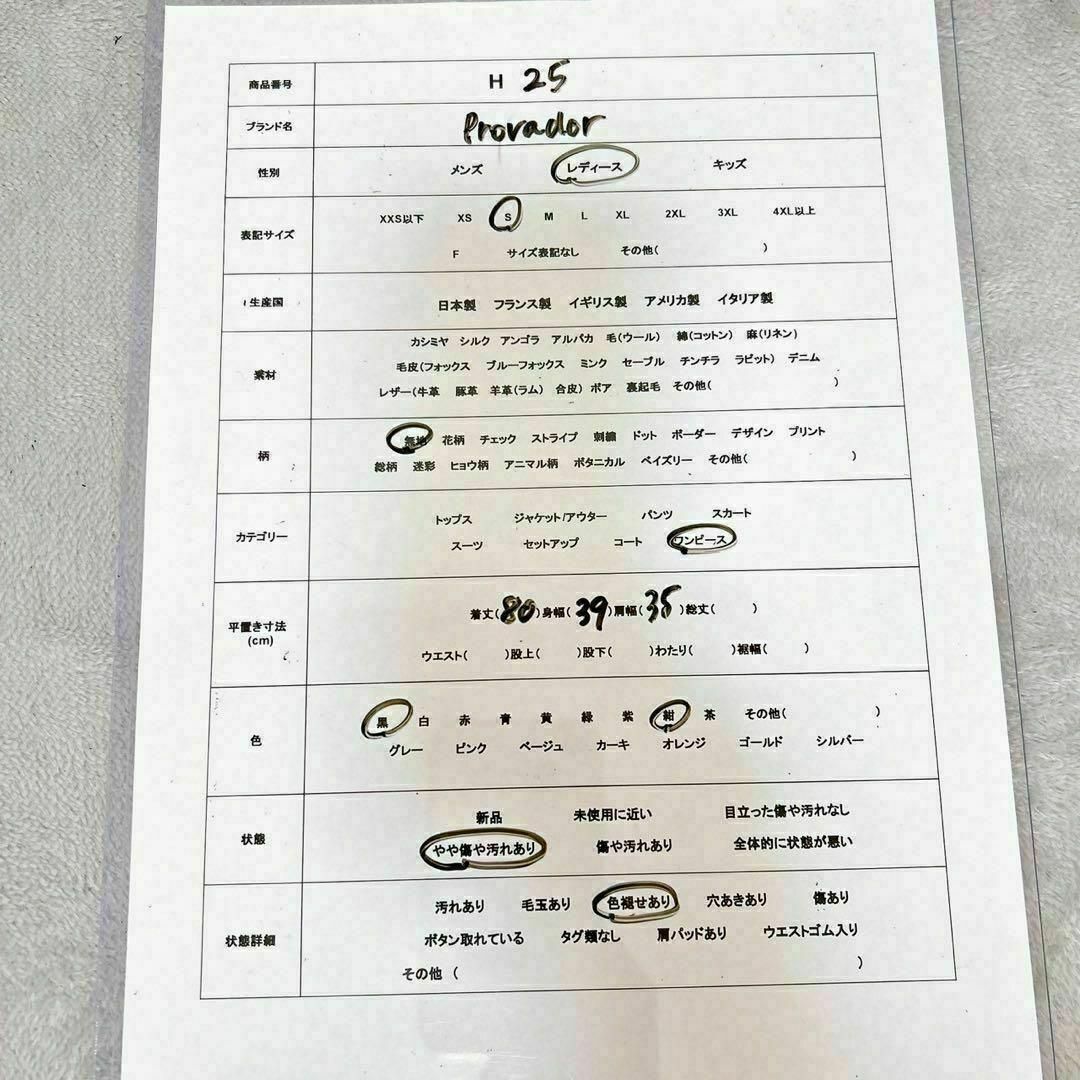 商品番号 H 25
ブランド名 Provador
性別 メンズ レディース キッズ
表記サイズ XXS以下 XS S M L XL 2XL 3XL 4XL以上
F サイズ表記なし その他( )
生産国 日本製 フランス製 イギリス製 アメリカ製 イタリア製
素材 カシミヤ シルク アンゴラ アルパカ 毛(ウール) 綿(コットン) 麻(リネン)
毛皮(フォックス ブルーフォックス ミンク セーブル チンチラ ラビット) デニム
レザー(牛革 豚革 羊革(ラム) 合皮) ボア 裏起毛 その他( )
柄 無地 花柄 チェック ストライプ 刺繍 ドット ボーダー デザイン プリント
総柄 迷彩 ヒョウ柄 アニマル柄 ボタニカル ペイズリー その他( )
カテゴリー トップス ジャケット/アウター パンツ スカート
スーツ セットアップ コート ワンピース
平置き寸法 (cm) 着丈(80)身幅(39)肩幅(35)総丈( )
ウエスト( )股上( )股下( )わたり( )裾幅( )
色 黒 白 赤 青 黄 緑 紫 紺 茶 その他( )
グレー ピンク ベージュ カーキ オレンジ ゴールド シルバー
状態 新品 未使用に近い 目立った傷や汚れなし
やや傷や汚れあり 傷や汚れあり 全体的に状態が悪い
状態詳細 汚れあり 毛玉あり 色褪せあり 穴あきあり 傷あり
ボタン取れている タグ類なし 肩パッドあり ウエストゴム入り
その他 ( )